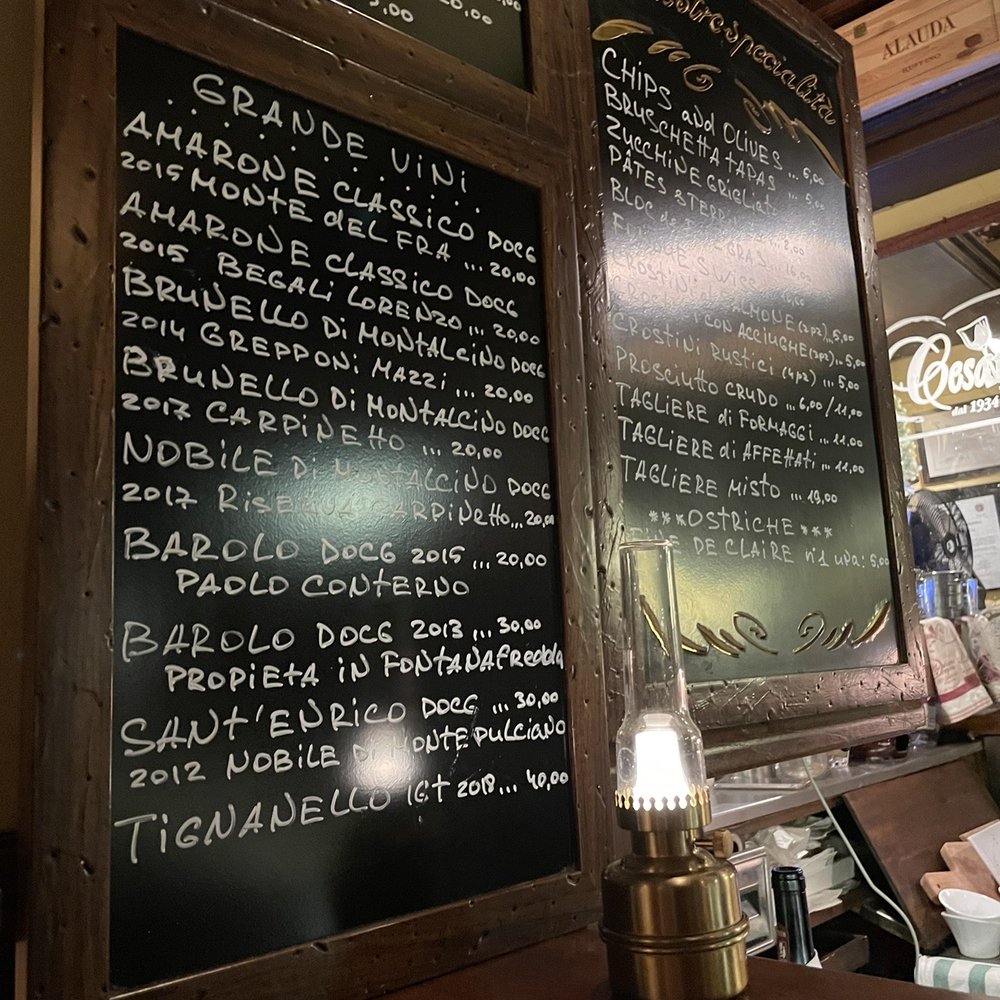 GRANDE ViNi
AMARONE CLASSICO DOCG
2015 MONTE dEL FRA ... 20,00
AMARONE CLASSICO DOCG
2015 BEGALI LORENZO ... 20,00
BRUNELLO Di MONTALCINO DOCG
2014 GREPPONi MAZZi ... 20,00
BRUNELLO Di MONTALCINO DOCG
2017 CARPiNEttO ... 20,00
NOBiLE Di MONTALCiNO DOCG
2017 RISERVA CARPiNEttO ... 20,00
BAROLO DOCG 2015 ... 20,00
PAOLO CONTERNO
BAROLO DOCG 2013 ... 30,00
PROPiEtA iN FONTANAfREdda
SANt'ENRiCO DOCG ... 30,00
2012 NOBiLE Di MONTEPULCiANO
TiGNANELLO IGt 2018 ... 40,00
Specialita
CHiPS aNd OLiVES ... 6,00
BRUSCHEttA TAPAS ... 5,00
ZUCCHiNE GRiGLiAtE
PÂTES
BLOC de
CROStiNi RUStiCi (4pz) ... 5,00
PROSCiUttO CRUDO ... 6,00/11,00
TAGLiERE di FORMAGGi ... 11,00
TAGLiERE di AFFEttATi ... 11,00
TAGLiERE MiStO ... 19,00
***OSTRiCHE***
DE CLAiRE n°1 una: 5,00
ALAUDA
RUFFINO
dal 1934